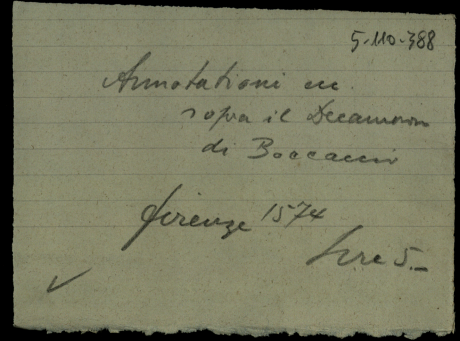 5-110-388
Annotationi ec.
sopra il Decameron
di Boccaccio
firenze 1574
Lire 5.-